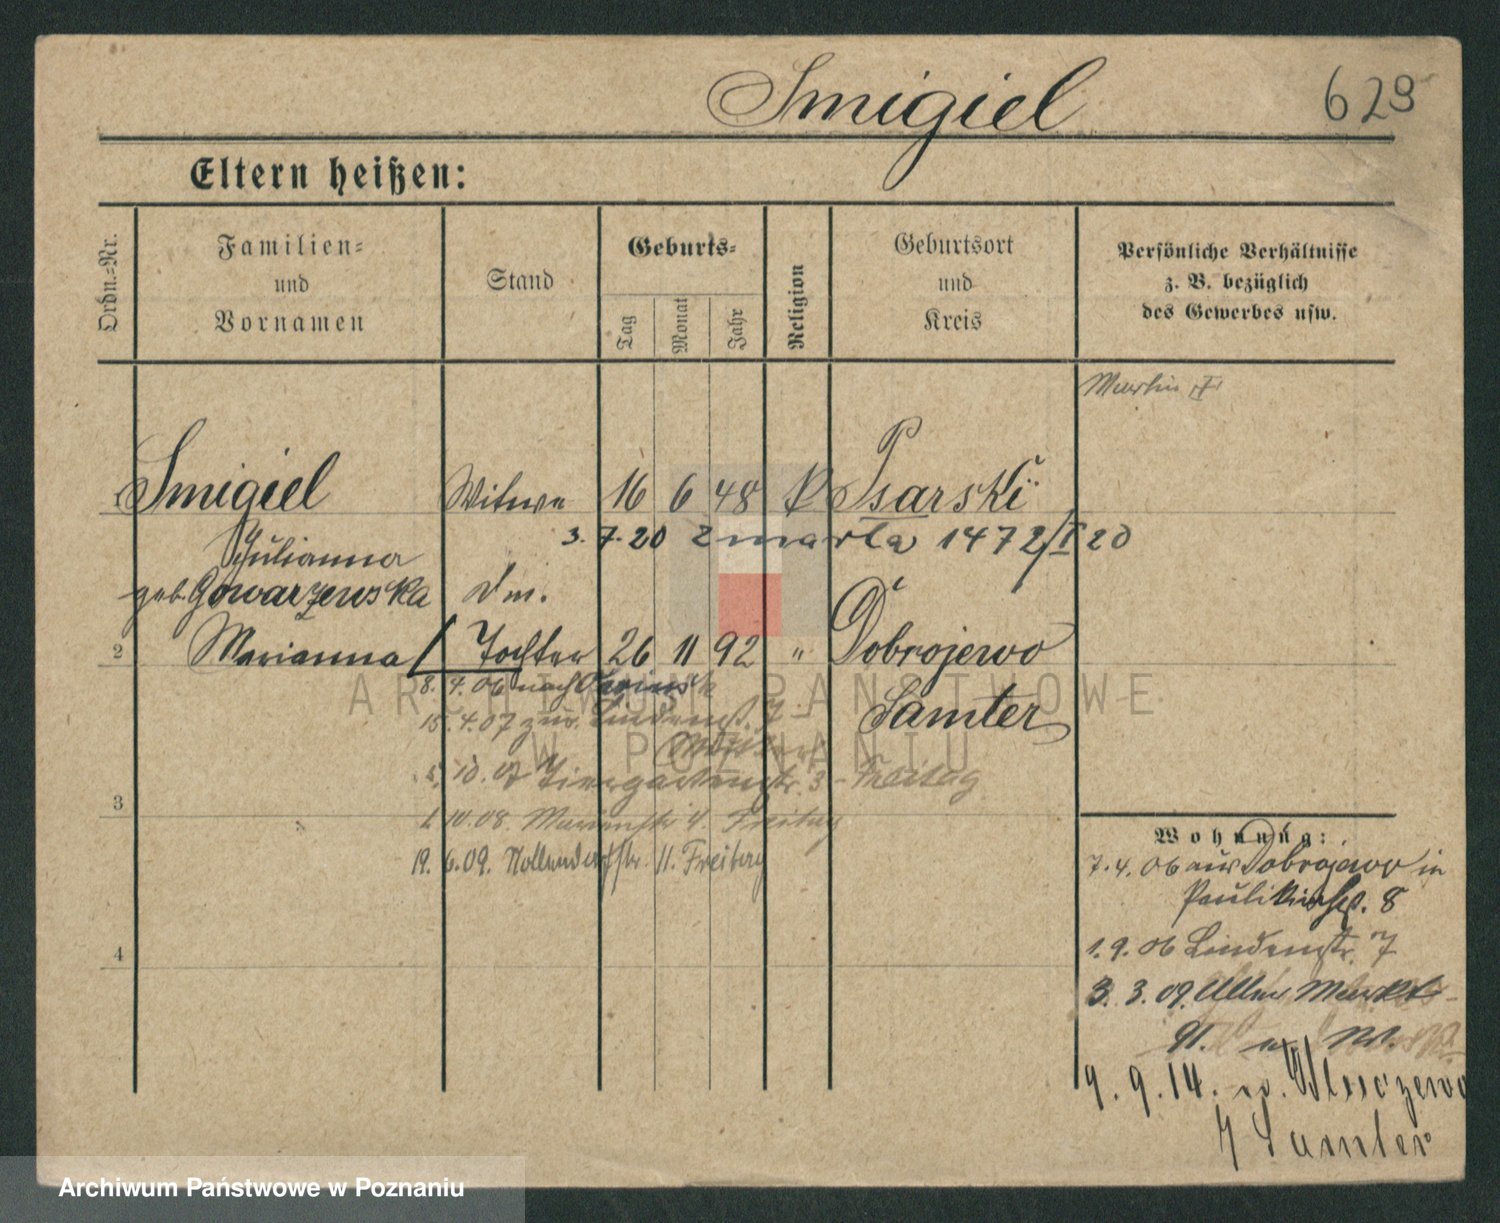 Smigiel 629
Eltern heißen:
Ordn.=Nr.
Familien=
und
Vornamen
Stand
Geburts=
Tag
Monat
Jahr
Religion
Geburtsort
und
Kreis
Persönliche Verhältnisse
z. B. bezüglich
des Gewerbes usw.
1 Smigiel Witwe 16 6 48 K Psarski
3. 7. 20 zmarła 1472/I 20
Julianna
geb. Gowarzewska
2 Marianna Tochter 26 11 92 " Dobrojewo
Samter
8. 4. 06 nach
15. 4. 07 zur. Lindenstr. 7
5. 10. 07 Tiergartenstr. 3 Freitag
1. 10. 08. 4. Freitag
19. 6. 09. Nollendorfstr. 11. Freitag
3
4
Wohnung:
7. 4. 06 aus Dobrojewo in
Paulikirchstr. 8
1. 9. 06 Lindenstr. 7
3. 3. 09. Alter Markt
91.
9. 9. 14.
Samter
ARCHIWUM PAŃSTWOWE
W POZNANIU
Archiwum Państwowe w Poznaniu